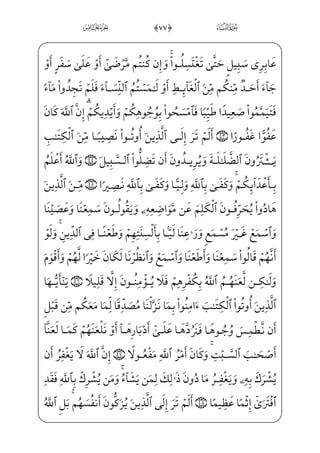 سورة النساء ﴿٧٧﴾ الجزء الخامس
عَابِرِى سَبِيلٍ حَتَّىٰ تَغْتَسِلُوا۟ ۚ وَإِن كُنتُم مَّرْضَىٰٓ أَوْ عَلَىٰ سَفَرٍ أَوْ
جَآءَ أَحَدٌ مِّنكُم مِّنَ ٱلْغَآئِطِ أَوْ لَـٰمَسْتُمُ ٱلنِّسَآءَ فَلَمْ تَجِدُوا۟ مَآءً
فَتَيَمَّمُوا۟ صَعِيدًا طَيِّبًا فَٱمْسَحُوا۟ بِوُجُوهِكُمْ وَأَيْدِيكُمْ ۗ إِنَّ ٱللَّهَ كَانَ
عَفُوًّا غَفُورًا ﴿٤٣﴾ أَلَمْ تَرَ إِلَى ٱلَّذِينَ أُوتُوا۟ نَصِيبًا مِّنَ ٱلْكِتَـٰبِ
يَشْتَرُونَ ٱلضَّلَـٰلَةَ وَيُرِيدُونَ أَن تَضِلُّوا۟ ٱلسَّبِيلَ ﴿٤٤﴾ وَٱللَّهُ أَعْلَمُ
بِأَعْدَآئِكُمْ ۚ وَكَفَىٰ بِٱللَّهِ وَلِيًّا وَكَفَىٰ بِٱللَّهِ نَصِيرًا ﴿٤٥﴾ مِّنَ ٱلَّذِينَ
هَادُوا۟ يُحَرِّفُونَ ٱلْكَلِمَ عَن مَّوَاضِعِهِۦ وَيَقُولُونَ سَمِعْنَا وَعَصَيْنَا
وَٱسْمَعْ غَيْرَ مُسْمَعٍ وَرَٰعِنَا لَيًّۢا بِأَلْسِنَتِهِمْ وَطَعْنًا فِى ٱلدِّينِ ۚ وَلَوْ
أَنَّهُمْ قَالُوا۟ سَمِعْنَا وَأَطَعْنَا وَٱسْمَعْ وَٱنظُرْنَا لَكَانَ خَيْرًا لَّهُمْ وَأَقْوَمَ
وَلَـٰكِن لَّعَنَهُمُ ٱللَّهُ بِكُفْرِهِمْ فَلَا يُؤْمِنُونَ إِلَّا قَلِيلًا ﴿٤٦﴾ يَـٰٓأَيُّهَا
ٱلَّذِينَ أُوتُوا۟ ٱلْكِتَـٰبَ ءَامِنُوا۟ بِمَا نَزَّلْنَا مُصَدِّقًا لِّمَا مَعَكُم مِّن قَبْلِ
أَن نَّطْمِسَ وُجُوهًا فَنَرُدَّهَا عَلَىٰٓ أَدْبَارِهَآ أَوْ نَلْعَنَهُمْ كَمَا لَعَنَّآ
أَصْحَـٰبَ ٱلسَّبْتِ ۚ وَكَانَ أَمْرُ ٱللَّهِ مَفْعُولًا ﴿٤٧﴾ إِنَّ ٱللَّهَ لَا يَغْفِرُ أَن
يُشْرَكَ بِهِۦ وَيَغْفِرُ مَا دُونَ ذَٰلِكَ لِمَن يَشَآءُ ۚ وَمَن يُشْرِكْ بِٱللَّهِ فَقَدِ
ٱفْتَرَىٰٓ إِثْمًا عَظِيمًا ﴿٤٨﴾ أَلَمْ تَرَ إِلَى ٱلَّذِينَ يُزَكُّونَ أَنفُسَهُم ۚ بَلِ ٱللَّهُ